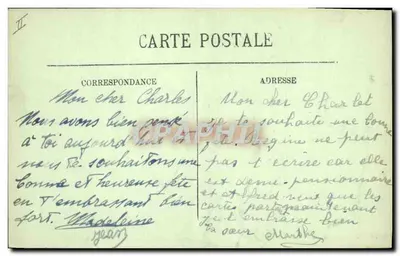 II
CARTE POSTALE
CORRESPONDANCE
Mon cher Charles
Nous avons bien pensé
à toi aujourd'hui et
nous te souhaitons une
bonne et heureuse fête
en t'embrassant bien
fort. Madeleine
Jean
ADRESSE
Mon cher Charlot
je te souhaite une bonne
fête. Regine ne peut
pas t'ecrire car elle
est demi-pensionnaire
et veut que les
cartes partent maintenant
je t'embrasse bien
Ta sœur Marthe